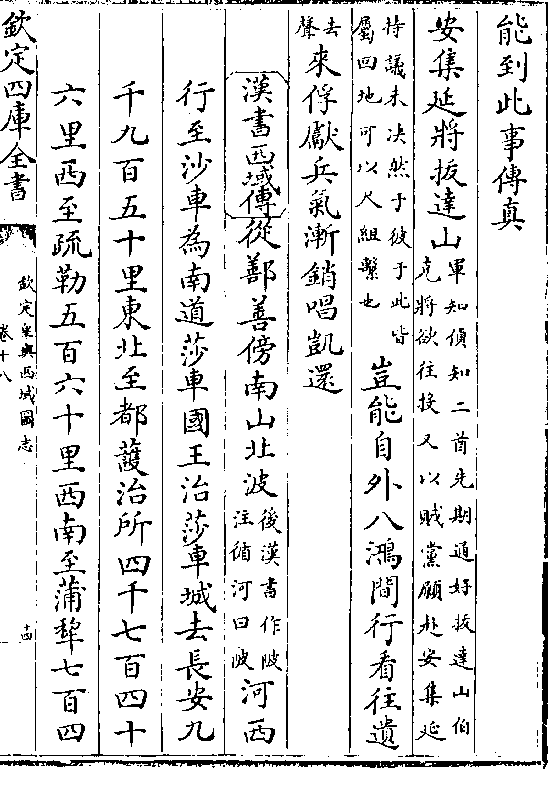 能到此事傳真
安集延將拔達山軍知偵知二首先期通好拔達山伯
克將欲往投又以賊黨願赴安集延
持議未決然于彼于此皆
屬回地可以尺組繫也豈能自外八鴻間行看往遺
去
聲來俘獻兵氣漸銷唱凱還
漢書西域傳從鄯善傍南山北波後漢書作陂
注循河曰陂河西
行至沙車為南道莎車國王治莎車城去長安九
千九百五十里東北至都䕶治所四千七百四十
六里西至疏勒五百六十里西南至蒲犂七百四
欽定四庫全書
欽定皇輿西域圖志
卷十八
十四